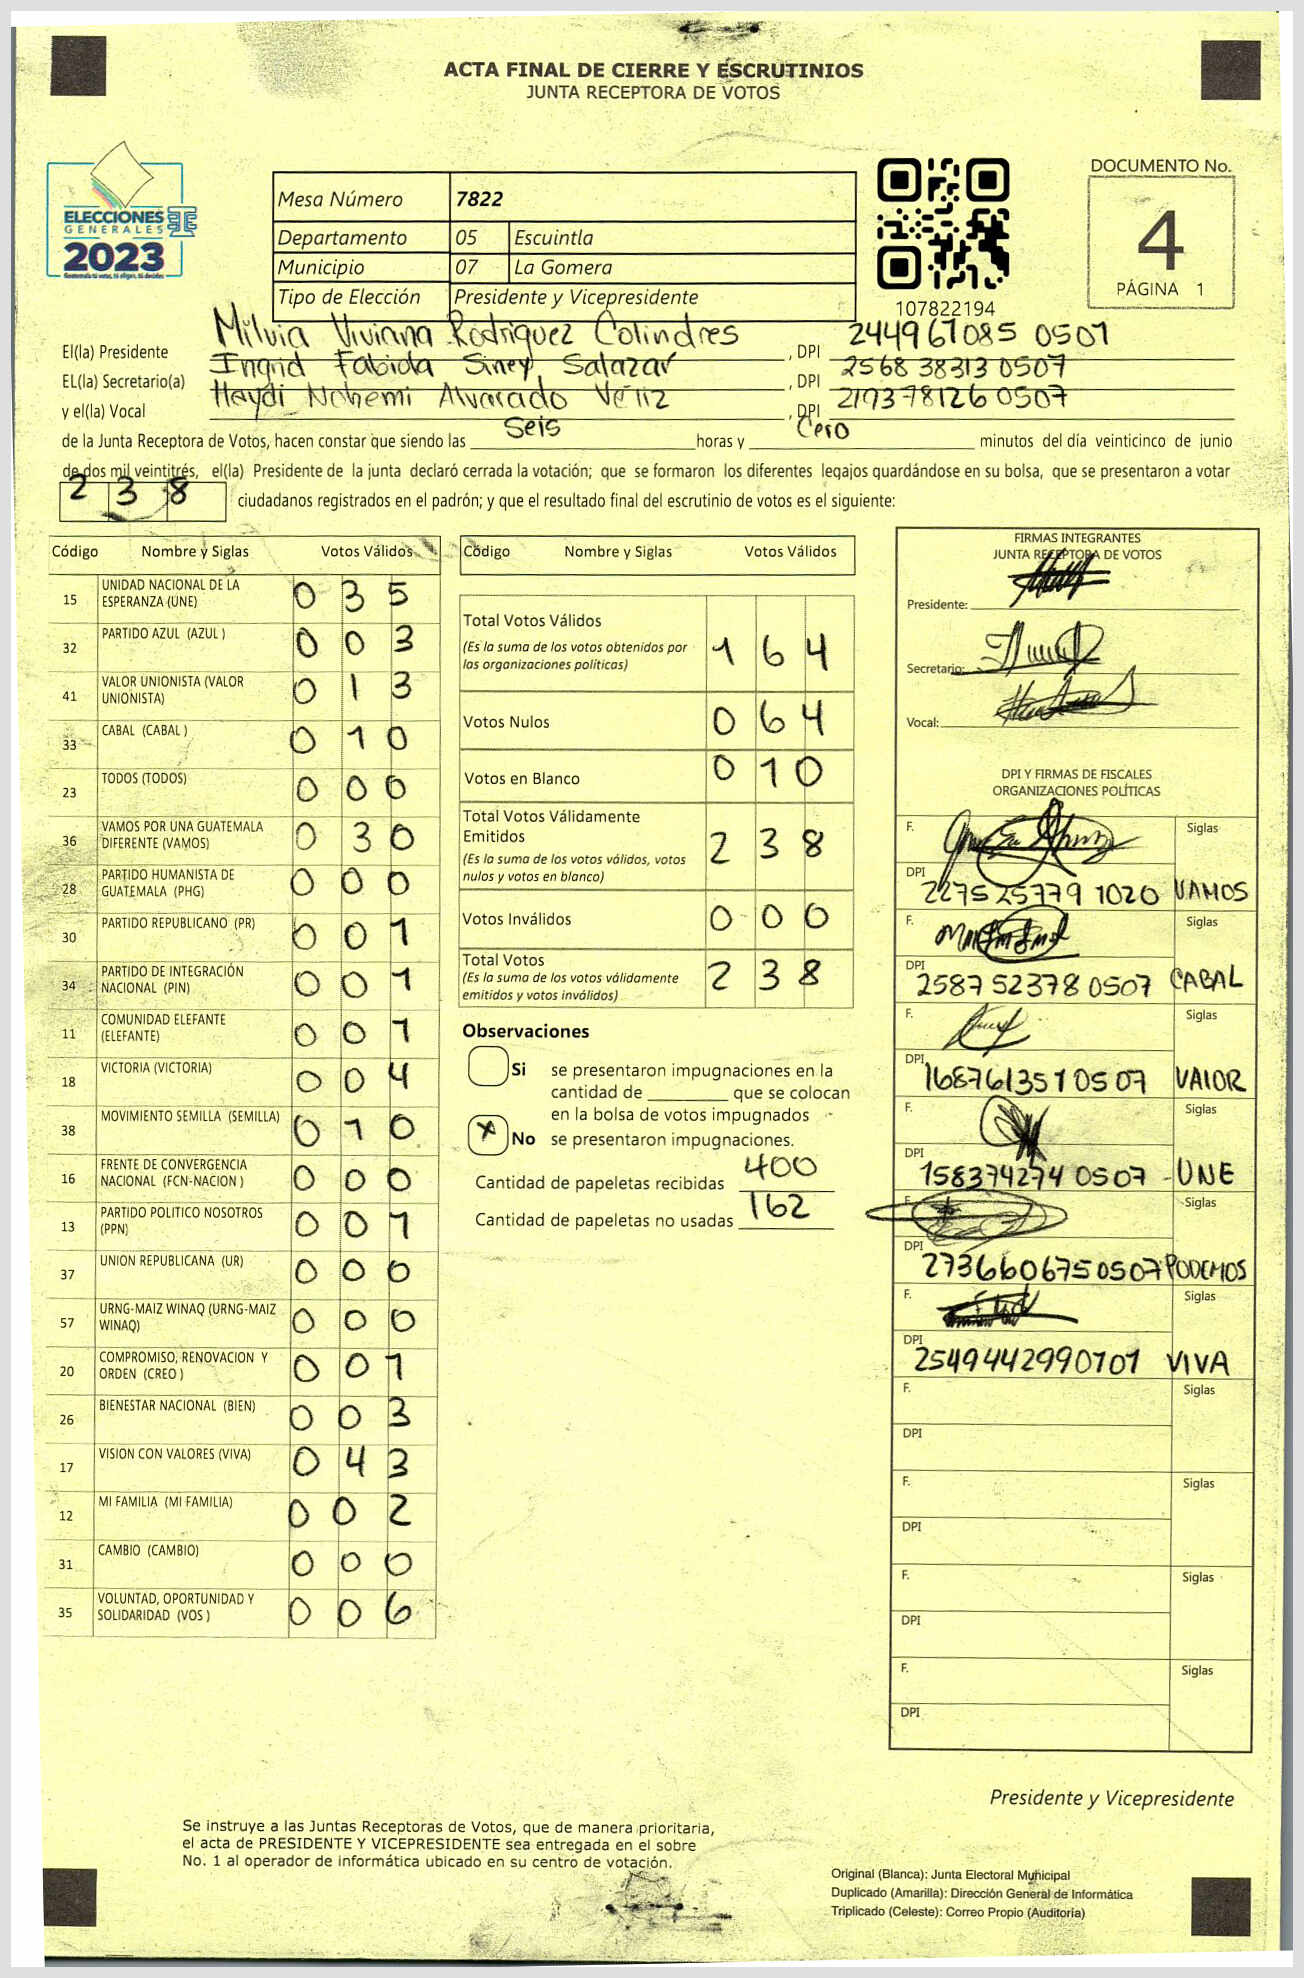 ACTA FINAL DE CIERRE Y ESCRUTINIOS
JUNTA RECEPTORA DE VOTOS
ELECCIONES
GENERALES
2023
Mesa Número 7822
Departamento 05 Escuintla
Municipio 07 La Gomera
Tipo de Elección Presidente y Vicepresidente
107822194
DOCUMENTO No.
4
PÁGINA 1
El(la) Presidente Milvia Viviana Rodriguez Colindres , DPI 244967085 0507
EL(la) Secretario(a) Ingrid Fabiola Siney Salazar , DPI 2568 38313 0507
y el(la) Vocal Haydi Nohemi Alvarado Véliz , DPI 219378126 0507
de la Junta Receptora de Votos, hacen constar que siendo las Seis horas y Cero minutos del día veinticinco de junio
de dos mil veintitrés, el(la) Presidente de la junta declaró cerrada la votación; que se formaron los diferentes legajos guardándose en su bolsa, que se presentaron a votar
2 3 8 ciudadanos registrados en el padrón; y que el resultado final del escrutinio de votos es el siguiente:
Código Nombre y Siglas Votos Válidos
15 UNIDAD NACIONAL DE LA ESPERANZA (UNE) 0 3 5
32 PARTIDO AZUL (AZUL ) 0 0 3
41 VALOR UNIONISTA (VALOR UNIONISTA) 0 1 3
33 CABAL (CABAL ) 0 1 0
23 TODOS (TODOS) 0 0 0
36 VAMOS POR UNA GUATEMALA DIFERENTE (VAMOS) 0 3 0
28 PARTIDO HUMANISTA DE GUATEMALA (PHG) 0 0 0
30 PARTIDO REPUBLICANO (PR) 0 0 1
34 PARTIDO DE INTEGRACIÓN NACIONAL (PIN) 0 0 1
11 COMUNIDAD ELEFANTE (ELEFANTE) 0 0 1
18 VICTORIA (VICTORIA) 0 0 4
38 MOVIMIENTO SEMILLA (SEMILLA) 0 1 0
16 FRENTE DE CONVERGENCIA NACIONAL (FCN-NACION ) 0 0 0
13 PARTIDO POLITICO NOSOTROS (PPN) 0 0 1
37 UNION REPUBLICANA (UR) 0 0 0
57 URNG-MAIZ WINAQ (URNG-MAIZ WINAQ) 0 0 0
20 COMPROMISO, RENOVACION Y ORDEN (CREO ) 0 0 1
26 BIENESTAR NACIONAL (BIEN) 0 0 3
17 VISION CON VALORES (VIVA) 0 4 3
12 MI FAMILIA (MI FAMILIA) 0 0 2
31 CAMBIO (CAMBIO) 0 0 0
35 VOLUNTAD, OPORTUNIDAD Y SOLIDARIDAD (VOS ) 0 0 6
Código Nombre y Siglas Votos Válidos
Total Votos Válidos 1 6 4
(Es la suma de los votos obtenidos por
las organizaciones políticas)
Votos Nulos 0 6 4
Votos en Blanco 0 1 0
Total Votos Válidamente
Emitidos 2 3 8
(Es la suma de los votos válidos, votos
nulos y votos en blanco)
Votos Inválidos 0 0 0
Total Votos 2 3 8
(Es la suma de los votos válidamente
emitidos y votos inválidos)
Observaciones
Si se presentaron impugnaciones en la
cantidad de ________ que se colocan
en la bolsa de votos impugnados
x No se presentaron impugnaciones.
Cantidad de papeletas recibidas 400
Cantidad de papeletas no usadas 162
FIRMAS INTEGRANTES
JUNTA RECEPTORA DE VOTOS
Presidente:
Secretario:
Vocal:
DPI Y FIRMAS DE FISCALES
ORGANIZACIONES POLÍTICAS
F. Siglas
DPI 2275 25779 1020 VAMOS
F. Siglas
DPI 2587 52378 0507 CABAL
F. Siglas
DPI 1687613510507 VALOR
F. Siglas
DPI 158374274 0507 -UNE
F. Siglas
DPI 2736606750507 PODEMOS
F. Siglas
DPI 2549442990101 VIVA
F. Siglas
DPI
F. Siglas
DPI
F. Siglas
DPI
F. Siglas
DPI
Presidente y Vicepresidente
Se instruye a las Juntas Receptoras de Votos, que de manera prioritaria,
el acta de PRESIDENTE Y VICEPRESIDENTE sea entregada en el sobre
No. 1 al operador de informática ubicado en su centro de votación.
Original (Blanca): Junta Electoral Municipal
Duplicado (Amarilla): Dirección General de Informática
Triplicado (Celeste): Correo Propio (Auditoria)